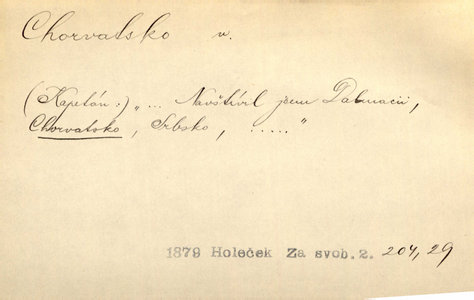 Chorvatsko n.
(Kapetán:) „... Navštívil jsem Dalmacii,
Chorvatsko, Srbsko, ....."
1879 Holeček Za svob. 2. 204, 29